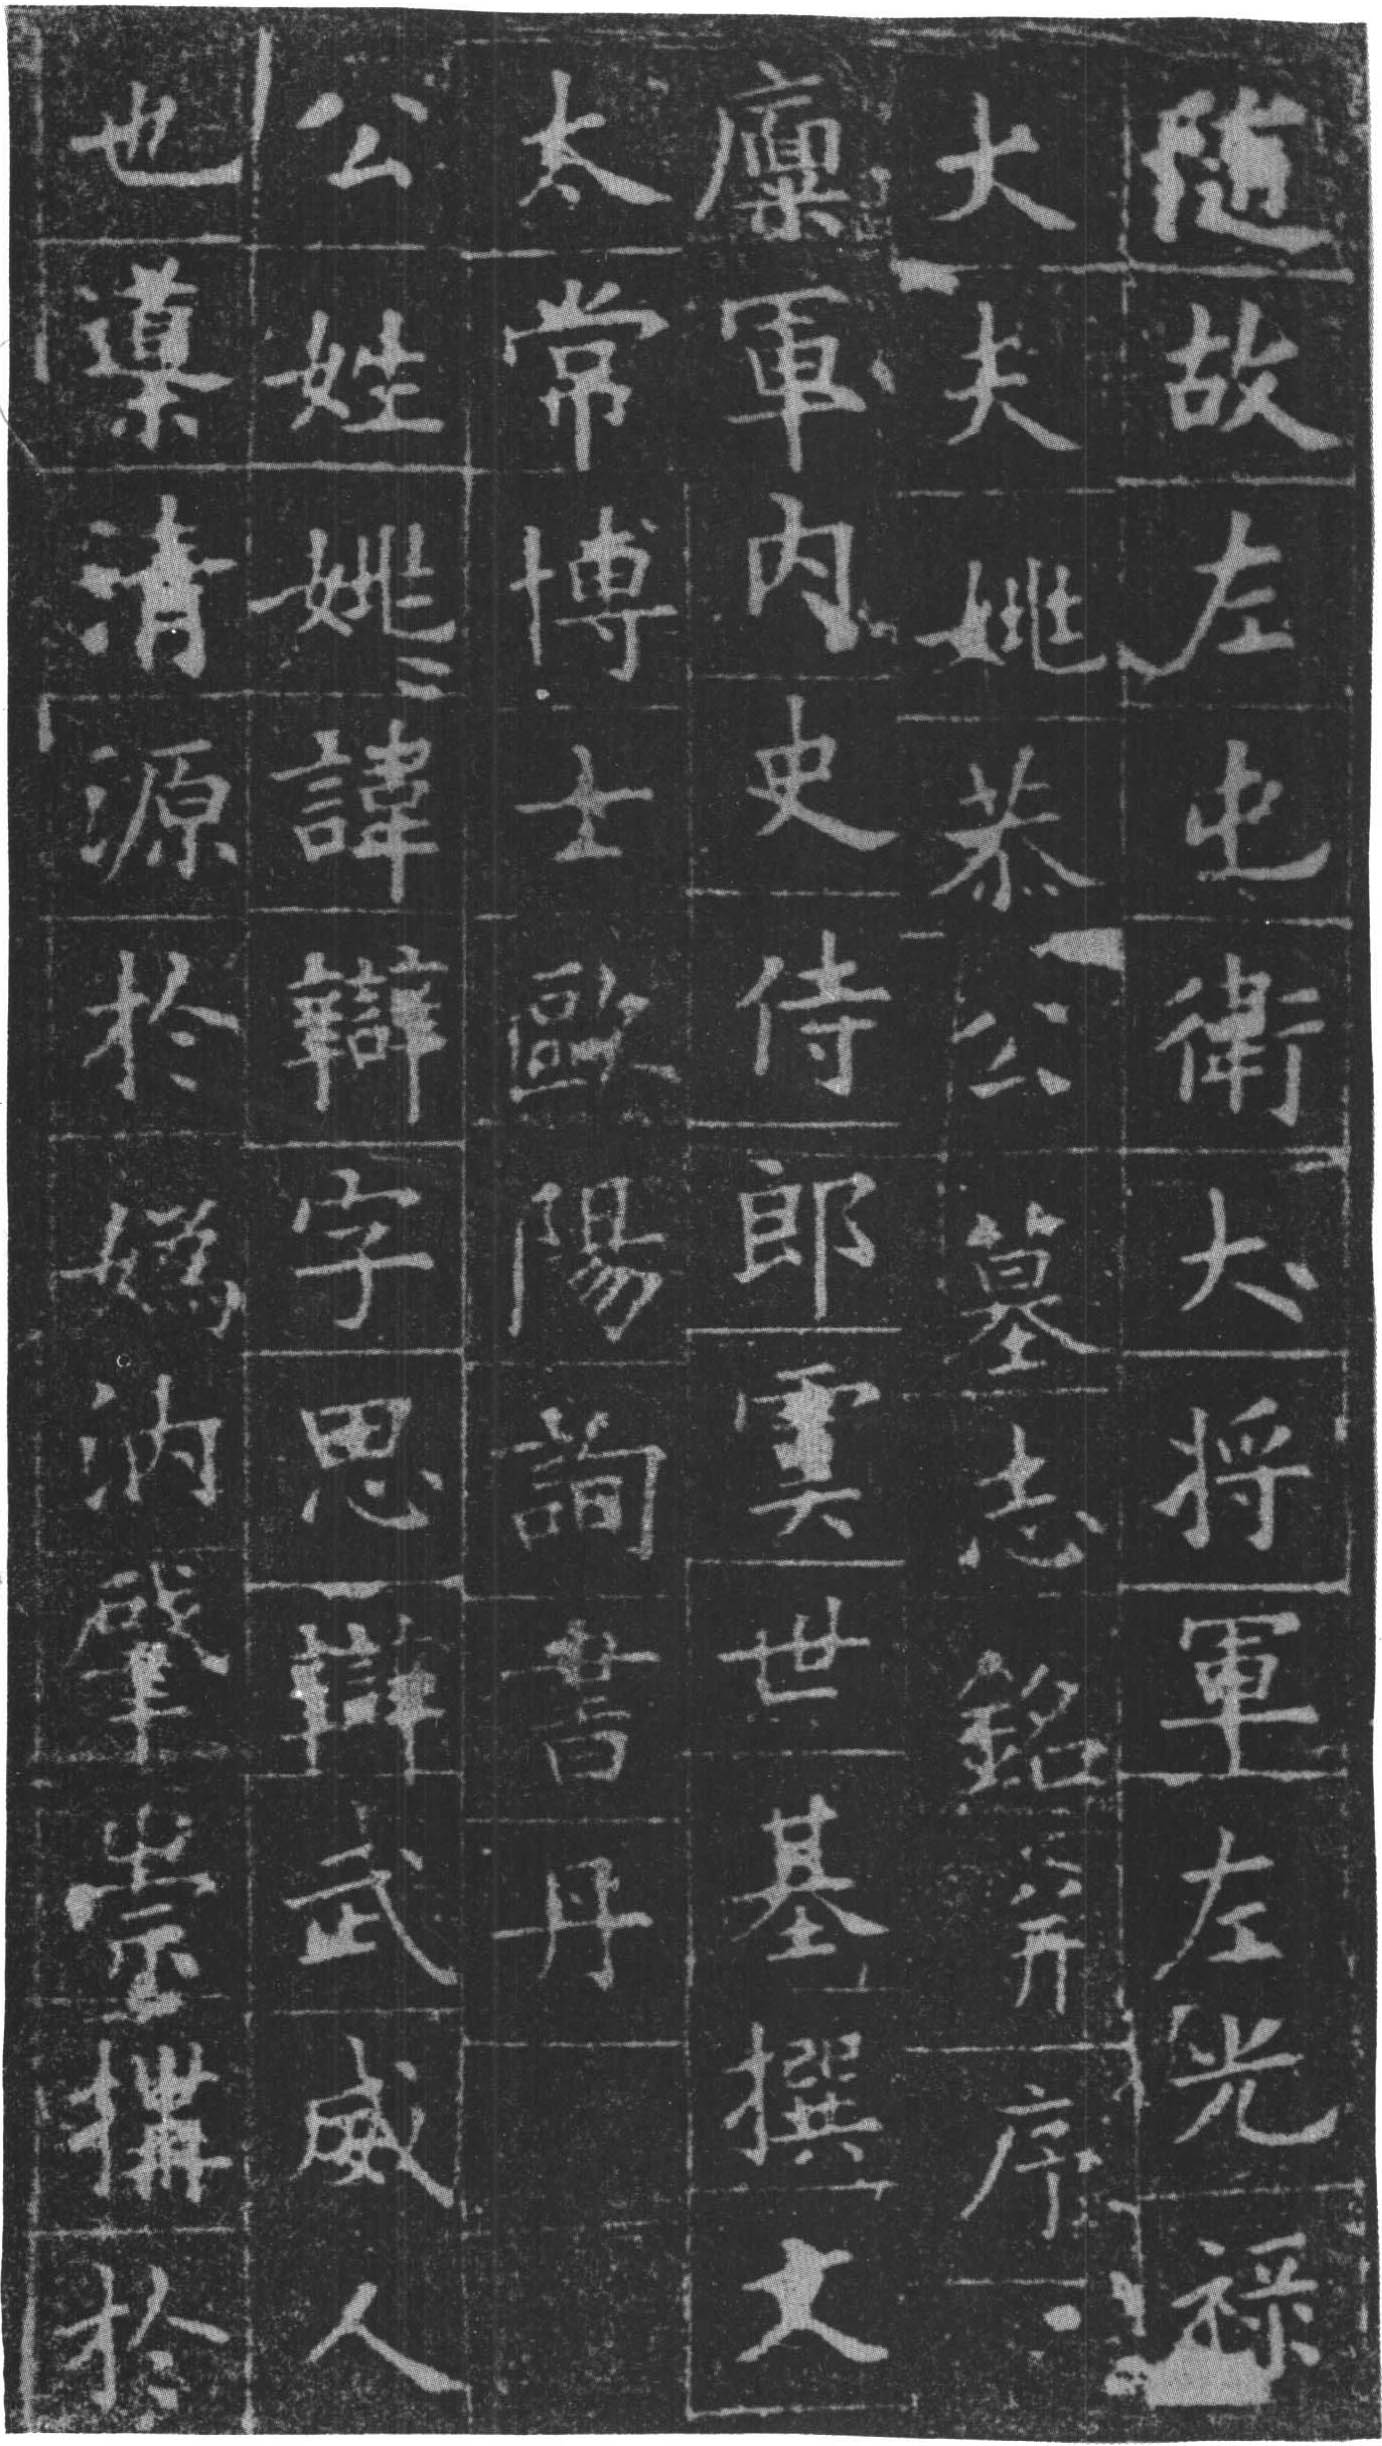 隨故左屯衛大将軍左光禄
大夫姚恭公墓志銘并序
廩軍内史侍郎虞世基撰文
太常博士歐陽詢書丹
公姓姚〻諱辯字思辯武威人
也導清源於嬀汭肇崇構於